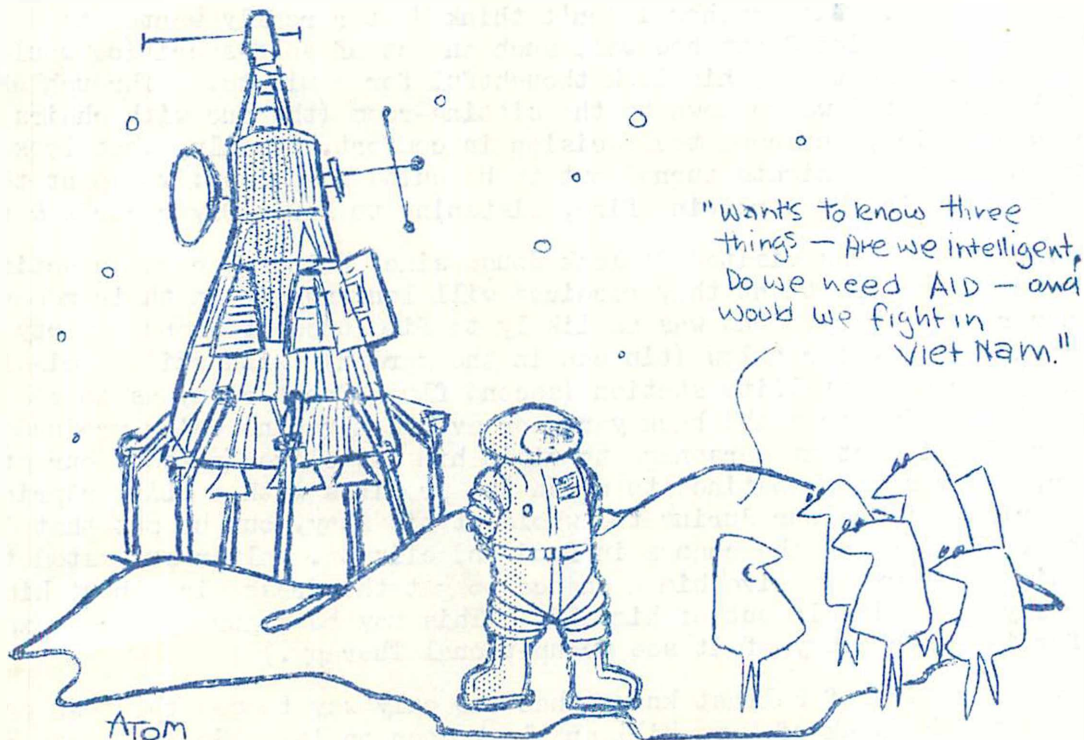 "wants to know three
things — Are we intelligent,
Do we need AID — and
would we fight in
Viet Nam."
ATOM